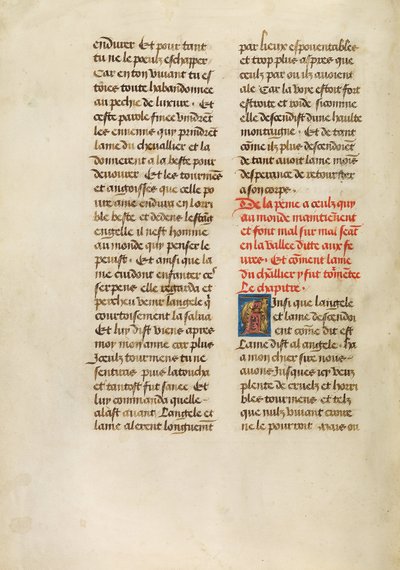 endurer Et pour tant
tu ne le poeulz eschapper
Car en ton vivant tu es
toies toute habandonnee
au pechie de luxure · Et
ceste parole finee vindrent
les ennemis quy prindrent
lame du chevallier et la
donnerent a la beste pour
devourer · Et les tourmens
et angoisses que celle po
ure ame endura en lorri
ble beste et dedens le stang
engelle il nest homme
au monde quy penser le
peuist · Et ainsi que la
me cuidont enfanter ces
serpens elle regarda et
percheu venir langele q̃
courtoisement la salua
Et luy dist viens apres
moy mon amie car plus
Jceulz tourmens tu ne
sentiras puis latoucha
et tantost fut sanee Et
luy commanda quelle
alast avant Langele et
lame alerent longuemẽt
par lieux espouentables
et trop plus aspres que
ceulz par ou ilz avoient
ale Car la voye estoit fort
estroite et roide sicomme
elle descendist dune haulte
montaigne · Et de tant
cõme ilz plus descendoiẽt
de tant avoit lame mois
desperance de retourner
a son corps ·
De la peine a ceulz quy
au monde maintiẽnent
et font mal sur mal seãt
en la vallee ditte aux fe
vres · Et cõment lame
du chl̃ier y fut tõmẽtee
Le chapitre ·
Ainsi que langele
et lame descendo
ient cõme dit est
Lame dist al angele · ha
a mon chier sire nous
avons Jusques icy veuz
plente de cruelz et horri
bles tourmens et telz
que nulz vivant croire
ne le pourroit mais ou